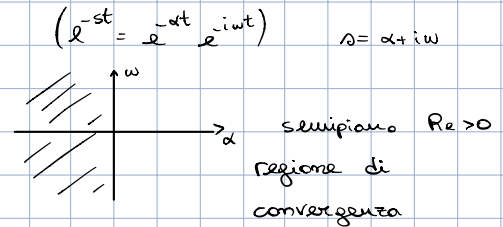 (e^{-st} = e^{-αt} e^{-iωt}) s = α + iω
ω
α
semipiano Re > 0
regione di
convergenza